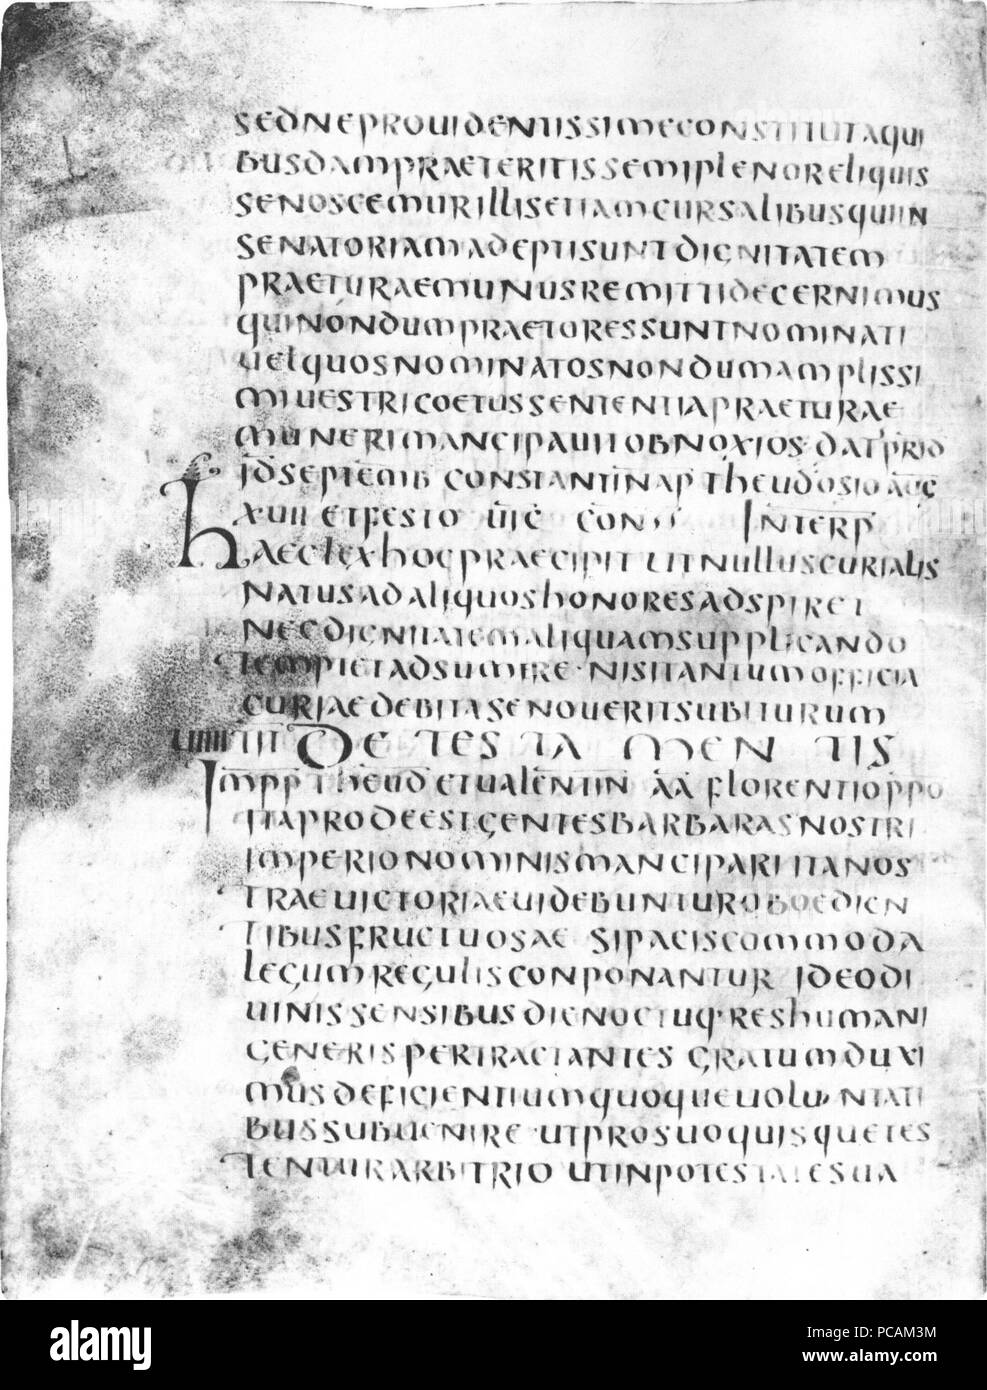 SEDNEPROUIDENTISSIMECONSTITUTAQUI
BUSDAMPRAETERITISSEMIPLENORELIQUIS
SENOSCEMURILLISETIAMCURSALIBUSQUIIN
SENATORIAMADEPTISUNTDIGNITATEM
PRAETURAEMUNUSREMITTIDECERNIMUS
QUINONDUMPRAETORESSUNTNOMINATI
UELQUOSNOMINATOSNONDUMAMPLISSI
MIUESTRICOETUSSENTENTIAPRAETURAE
MUNERIMANCIPAUITOBNOXIOS·DATPRID
IDSEPTEMB CONSTANTINAP THEUDOSIO AUG
XUII ETFESTO UIC CONSS INTERP
HAECLEXHOCPRAECIPIT UTNULLUSCURIALIS
NATUSADALIQUOSHONORESADSPIRET
NECDIGNITATEMALIQUAMSUPPLICANDO
TEMPTETADSUMERE·NISITANTUMOFFICIA
CURIAEDEBITASENOUERITSUBITURUM
UIIII TIT DE TESTAMENTIS
IMPP THEUD ETUALENTIN AA FLORENTIO PPO
ITAPRODEESTGENTESBARBARASNOSTRI
IMPERIONOMINISMANCIPARI ITANOS
TRAEUICTORIAEUIDEBUNTUROBOEDIEN
TIBUSFRUCTUOSAE SIPACISCOMMODA
LEGUMREGULISCONPONANTUR IDEODI
UINISSENSIBUSDIENOCTUQ·RESHUMANI
GENERISPERTRACTANTES GRATUMDUXI
MUSDEFICIENTIUMQUOQUEUOLUNTATI
BUSSUBUENIRE·UTPROSUOQUISQUETES
TENTURARBITRIO UTINPOTESTATESUA
alamy
Image ID: PCAM3M
www.alamy.com